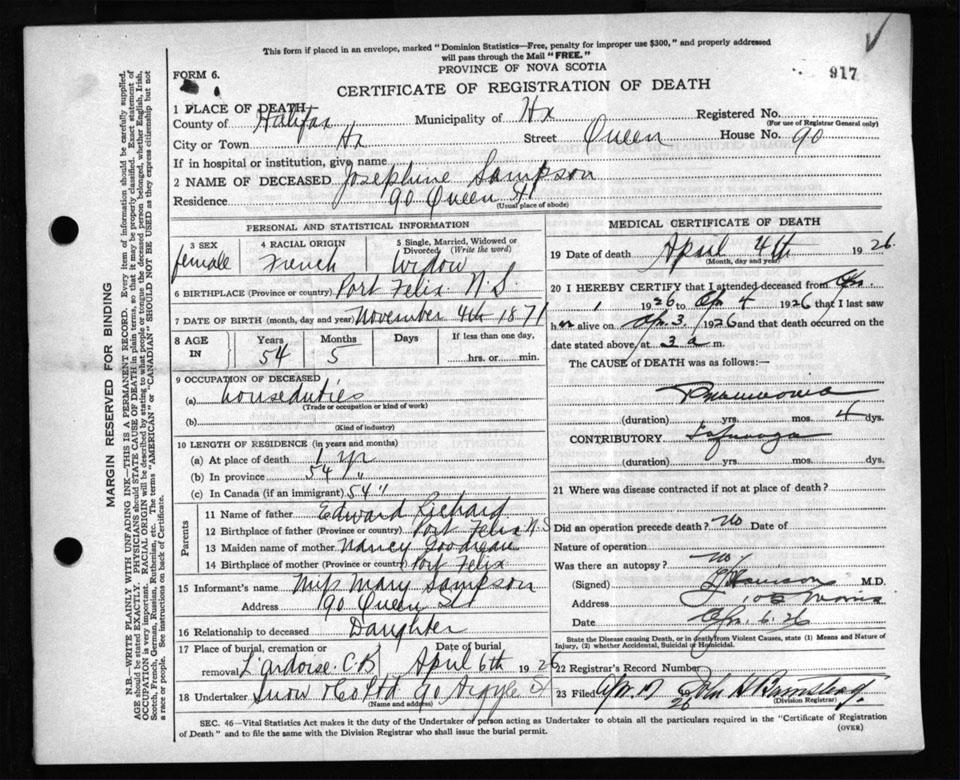 This form if placed in an envelope, marked "Dominion Statistics—Free, penalty for improper use $300," and properly addressed
will pass through the Mail "FREE."
PROVINCE OF NOVA SCOTIA
917
FORM 6.
CERTIFICATE OF REGISTRATION OF DEATH
1 PLACE OF DEATH
County of Halifax Municipality of Hx Registered No.
(For use of Registrar General only)
City or Town Hx Street Queen House No. 90
If in hospital or institution, give name
2 NAME OF DECEASED Josephine Sampson
Residence 90 Queen St
(Usual place of abode)
PERSONAL AND STATISTICAL INFORMATION
3 SEX 4 RACIAL ORIGIN 5 Single, Married, Widowed or Divorced (Write the word)
female French Widow
6 BIRTHPLACE (Province or country) Port Felix N.S.
7 DATE OF BIRTH (month, day and year) November 4th 1871
8 AGE IN Years Months Days If less than one day,
54 5 hrs. or min.
9 OCCUPATION OF DECEASED
(a) houseduties
(Trade or occupation or kind of work)
(b)
(Kind of industry)
10 LENGTH OF RESIDENCE (in years and months)
(a) At place of death 1 yr
(b) In province 54 "
(c) In Canada (if an immigrant) 54 "
Parents
11 Name of father Edward Richard
12 Birthplace of father (Province or country) Port Felix N.S
13 Maiden name of mother Nancy Goodreau
14 Birthplace of mother (Province or country) Port Felix
15 Informant's name Miss Mary Sampson
Address 90 Queen St
16 Relationship to deceased Daughter
17 Place of burial, cremation or removal L'ardoise C.B Date of burial April 6th 1926
18 Undertaker Snow & Co Ltd 90 Argyle St
(Name and address)
MEDICAL CERTIFICATE OF DEATH
19 Date of death April 4th 1926.
(Month, day and year)
20 I HEREBY CERTIFY that I attended deceased from Apr.
1 1926 to Apr 4 1926 that I last saw
her alive on Apr. 3. 1926 and that death occurred on the
date stated above, at 3 a m.
The CAUSE OF DEATH was as follows:—
Pneumonia
(duration) yrs. mos. 4 dys.
CONTRIBUTORY
(duration) yrs. mos. dys.
21 Where was disease contracted if not at place of death?
Did an operation precede death? No Date of
Nature of operation
Was there an autopsy? No
(Signed) M.D.
Address Morris
Date Apr. 6. 26
State the Disease causing Death, or in death from Violent Causes, state (1) Means and Nature of
Injury, (2) whether Accidental, Suicidal or Homicidal.
22 Registrar's Record Number
23 Filed Apr 17 26 John H Barnstead
(Division Registrar)
SEC. 46—Vital Statistics Act makes it the duty of the Undertaker or person acting as Undertaker to obtain all the particulars required in the "Certificate of Registration
of Death" and to file the same with the Division Registrar who shall issue the burial permit.
(OVER)
MARGIN RESERVED FOR BINDING
N.B.—WRITE PLAINLY WITH UNFADING INK—THIS IS A PERMANENT RECORD. Every item of information should be carefully supplied.
AGE should be stated EXACTLY. PHYSICIANS should STATE CAUSE OF DEATH in plain terms, so that it may be properly classified. Exact statement of
OCCUPATION is very important. RACIAL ORIGIN will be described by stating to what people or tongue the deceased person belonged, whether English, Irish,
Scotch, French, German, Russian, Ruthenian, etc. The terms "AMERICAN" or "CANADIAN" SHOULD NOT BE USED as they express citizenship but not
a race or people. See instructions on back of Certificate.